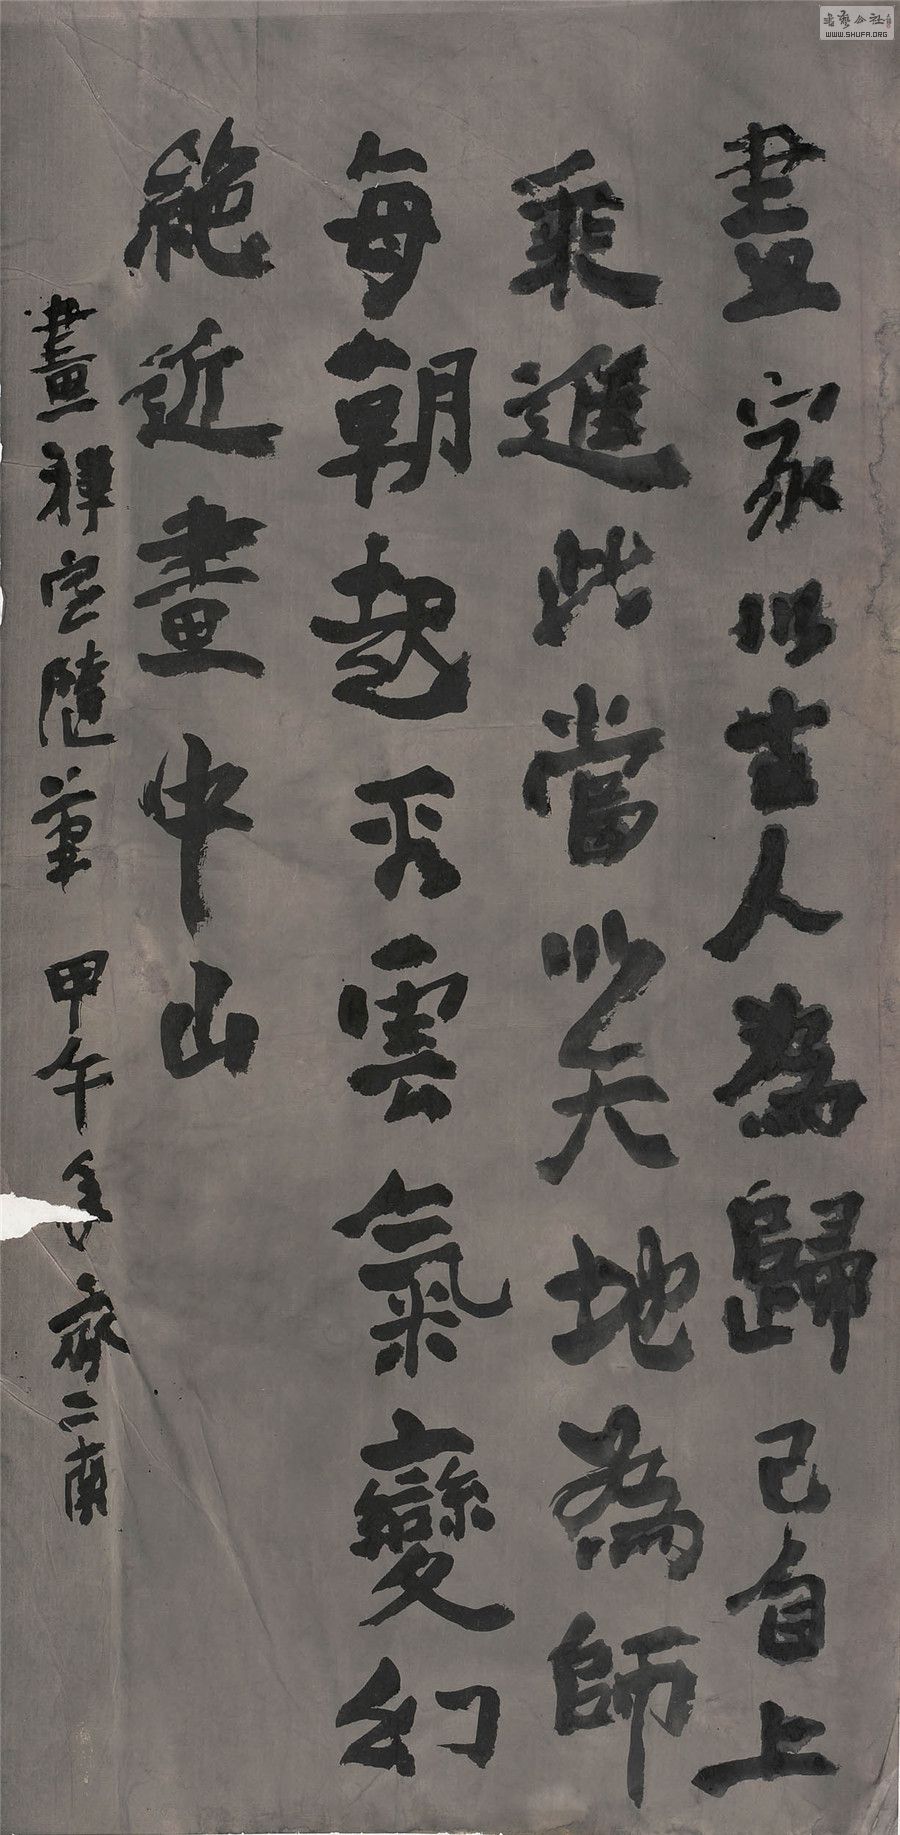 畫家以古人為歸已自上
乘進此當以天地為師
每朝起看雲氣變幻
絕近畫中山
畫禪室隨筆 甲午 二南
書藝公社
WWW.SHUFA.ORG